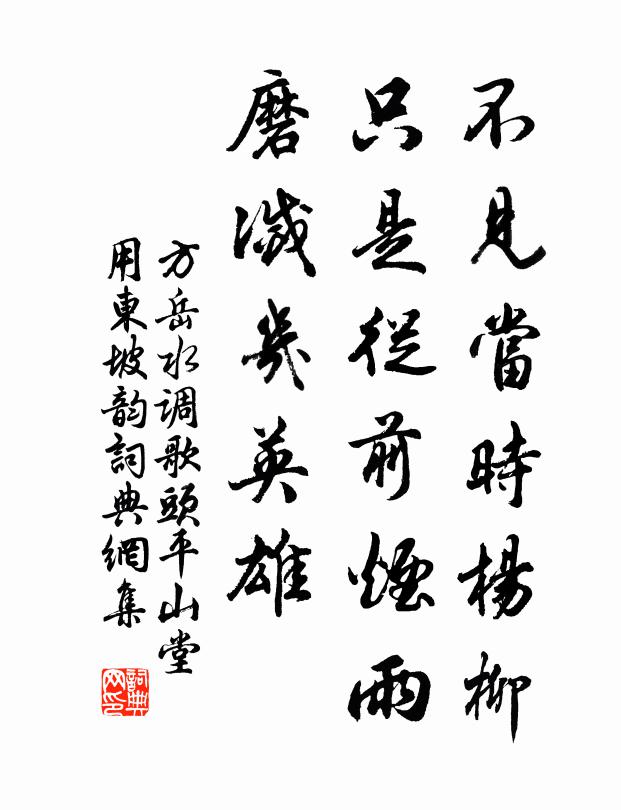 不見當時楊柳
只是從前煙雨
磨滅幾英雄
方岳水调歌頭平山堂
用東坡韵詞典網集
詞典网印